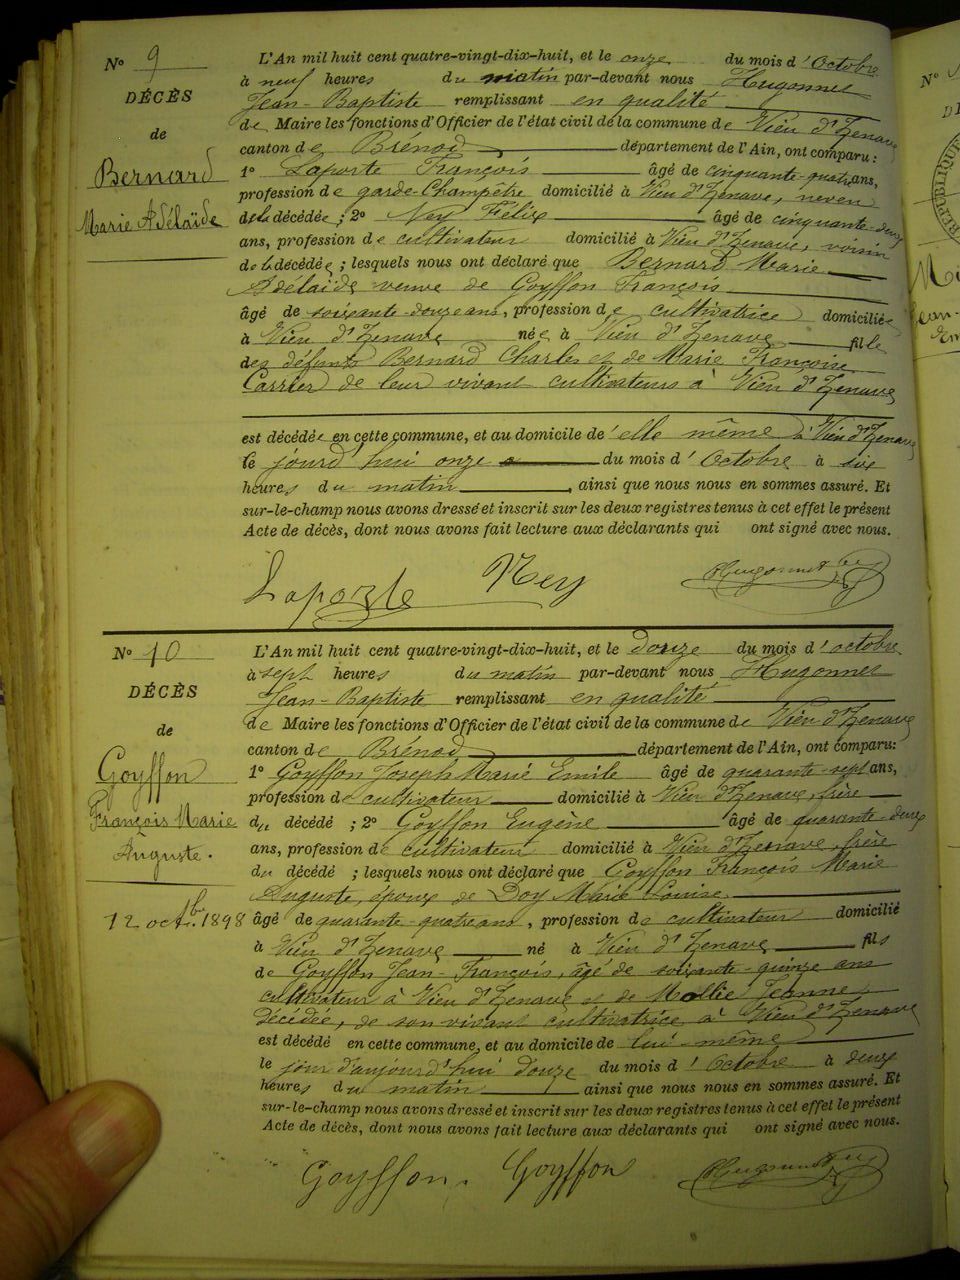 N° 9
DÉCÈS
de
Bernard
Marie Adélaïde
L'An mil huit cent quatre-vingt-dix-huit, et le onze du mois d'Octobre
à neuf heures du matin par-devant nous Hugonnet
Jean-Baptiste remplissant en qualité
de Maire les fonctions d'Officier de l'état civil de la commune de Vieu d'Izenave
canton de Brénod département de l'Ain, ont comparu :
1° Laporte François âgé de cinquante-quatre ans,
profession de garde-Champêtre domicilié à Vieu d'Izenave, neveu
de la décédée ; 2° Ney Félix âgé de cinquante-deux
ans, profession de cultivateur domicilié à Vieu d'Izenave, voisin
de la décédée ; lesquels nous ont déclaré que Bernard Marie
Adélaïde veuve de Goyffon François
âgé de soixante-douze ans, profession de cultivatrice domiciliée
à Vieu d'Izenave née à Vieu d'Izenave fille
des défunts Bernard Charles et de Marie Françoise
Carrier de leur vivant cultivateurs à Vieu d'Izenave
est décédée en cette commune, et au domicile de elle même à Vieu d'Izenave
le jourd'hui onze du mois d'Octobre à six
heures du matin, ainsi que nous nous en sommes assuré. Et
sur-le-champ nous avons dressé et inscrit sur les deux registres tenus à cet effet le présent
Acte de décès, dont nous avons fait lecture aux déclarants qui ont signé avec nous.
Laporte Ney Hugonnet
N° 10
DÉCÈS
de
Goyffon
François Marie
Auguste.
12 octbre 1898
L'An mil huit cent quatre-vingt-dix-huit, et le Douze du mois d'octobre
à sept heures du matin par-devant nous Hugonnet
Jean-Baptiste remplissant en qualité
de Maire les fonctions d'Officier de l'état civil de la commune de Vieu d'Izenave
canton de Brénod département de l'Ain, ont comparu :
1° Goyffon Joseph Marie Emile âgé de quarante-sept ans,
profession de cultivateur domicilié à Vieu d'Izenave, frère
du décédé ; 2° Goyffon Eugène âgé de quarante-deux
ans, profession de cultivateur domicilié à Vieu d'Izenave, frère
du décédé ; lesquels nous ont déclaré que Goyffon François Marie
Auguste, époux de Doy Marie Louise
âgé de quarante-quatre ans, profession de cultivateur domicilié
à Vieu d'Izenave né à Vieu d'Izenave fils
de Goyffon Jean-François, âgé de soixante-quinze ans
cultivateur à Vieu d'Izenave et de Mollie Jeanne
décédée, de son vivant cultivatrice à Vieu d'Izenave
est décédé en cette commune, et au domicile de lui-même
le jour d'aujourd'hui douze du mois d'Octobre à deux
heures du matin ainsi que nous nous en sommes assuré. Et
sur-le-champ nous avons dressé et inscrit sur les deux registres tenus à cet effet le présent
Acte de décès, dont nous avons fait lecture aux déclarants qui ont signé avec nous.
Goyffon. Goyffon Hugonnet